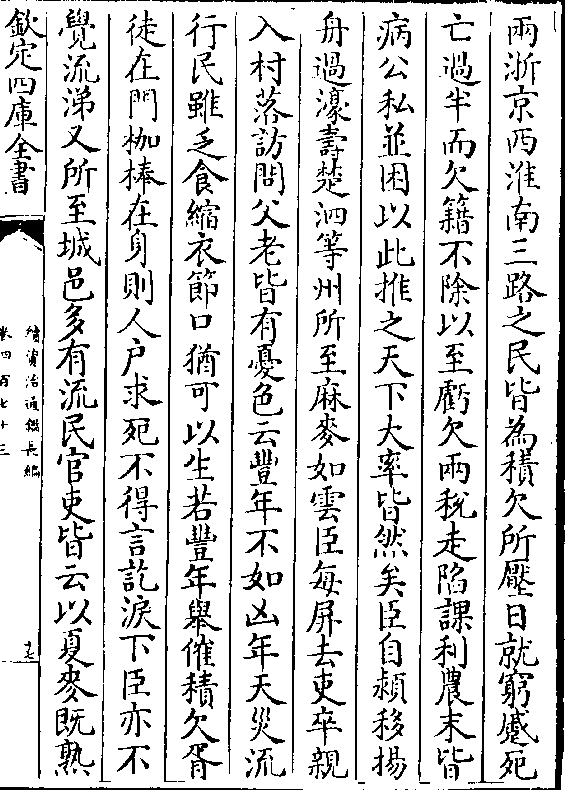 兩浙京西淮南三路之民皆為積欠所壓日就窮蹙死
亡過半而欠籍不除以至虧欠兩稅走陷課利農末皆
病公私並困以此推之天下大率皆然矣臣自潁移揚
舟過濠壽楚泗等州所至麻麥如雲臣每屏去吏卒親
入村落訪問父老皆有憂色云豐年不如凶年天災流
行民雖乏食縮衣節口猶可以生若豐年舉催積欠胥
徒在門枷棒在身則人戶求死不得言訖淚下臣亦不
覺流涕又所至城邑多有流民官吏皆云以夏麥既熟
欽定四庫全書
續資治通鑑長編
卷四百七十三